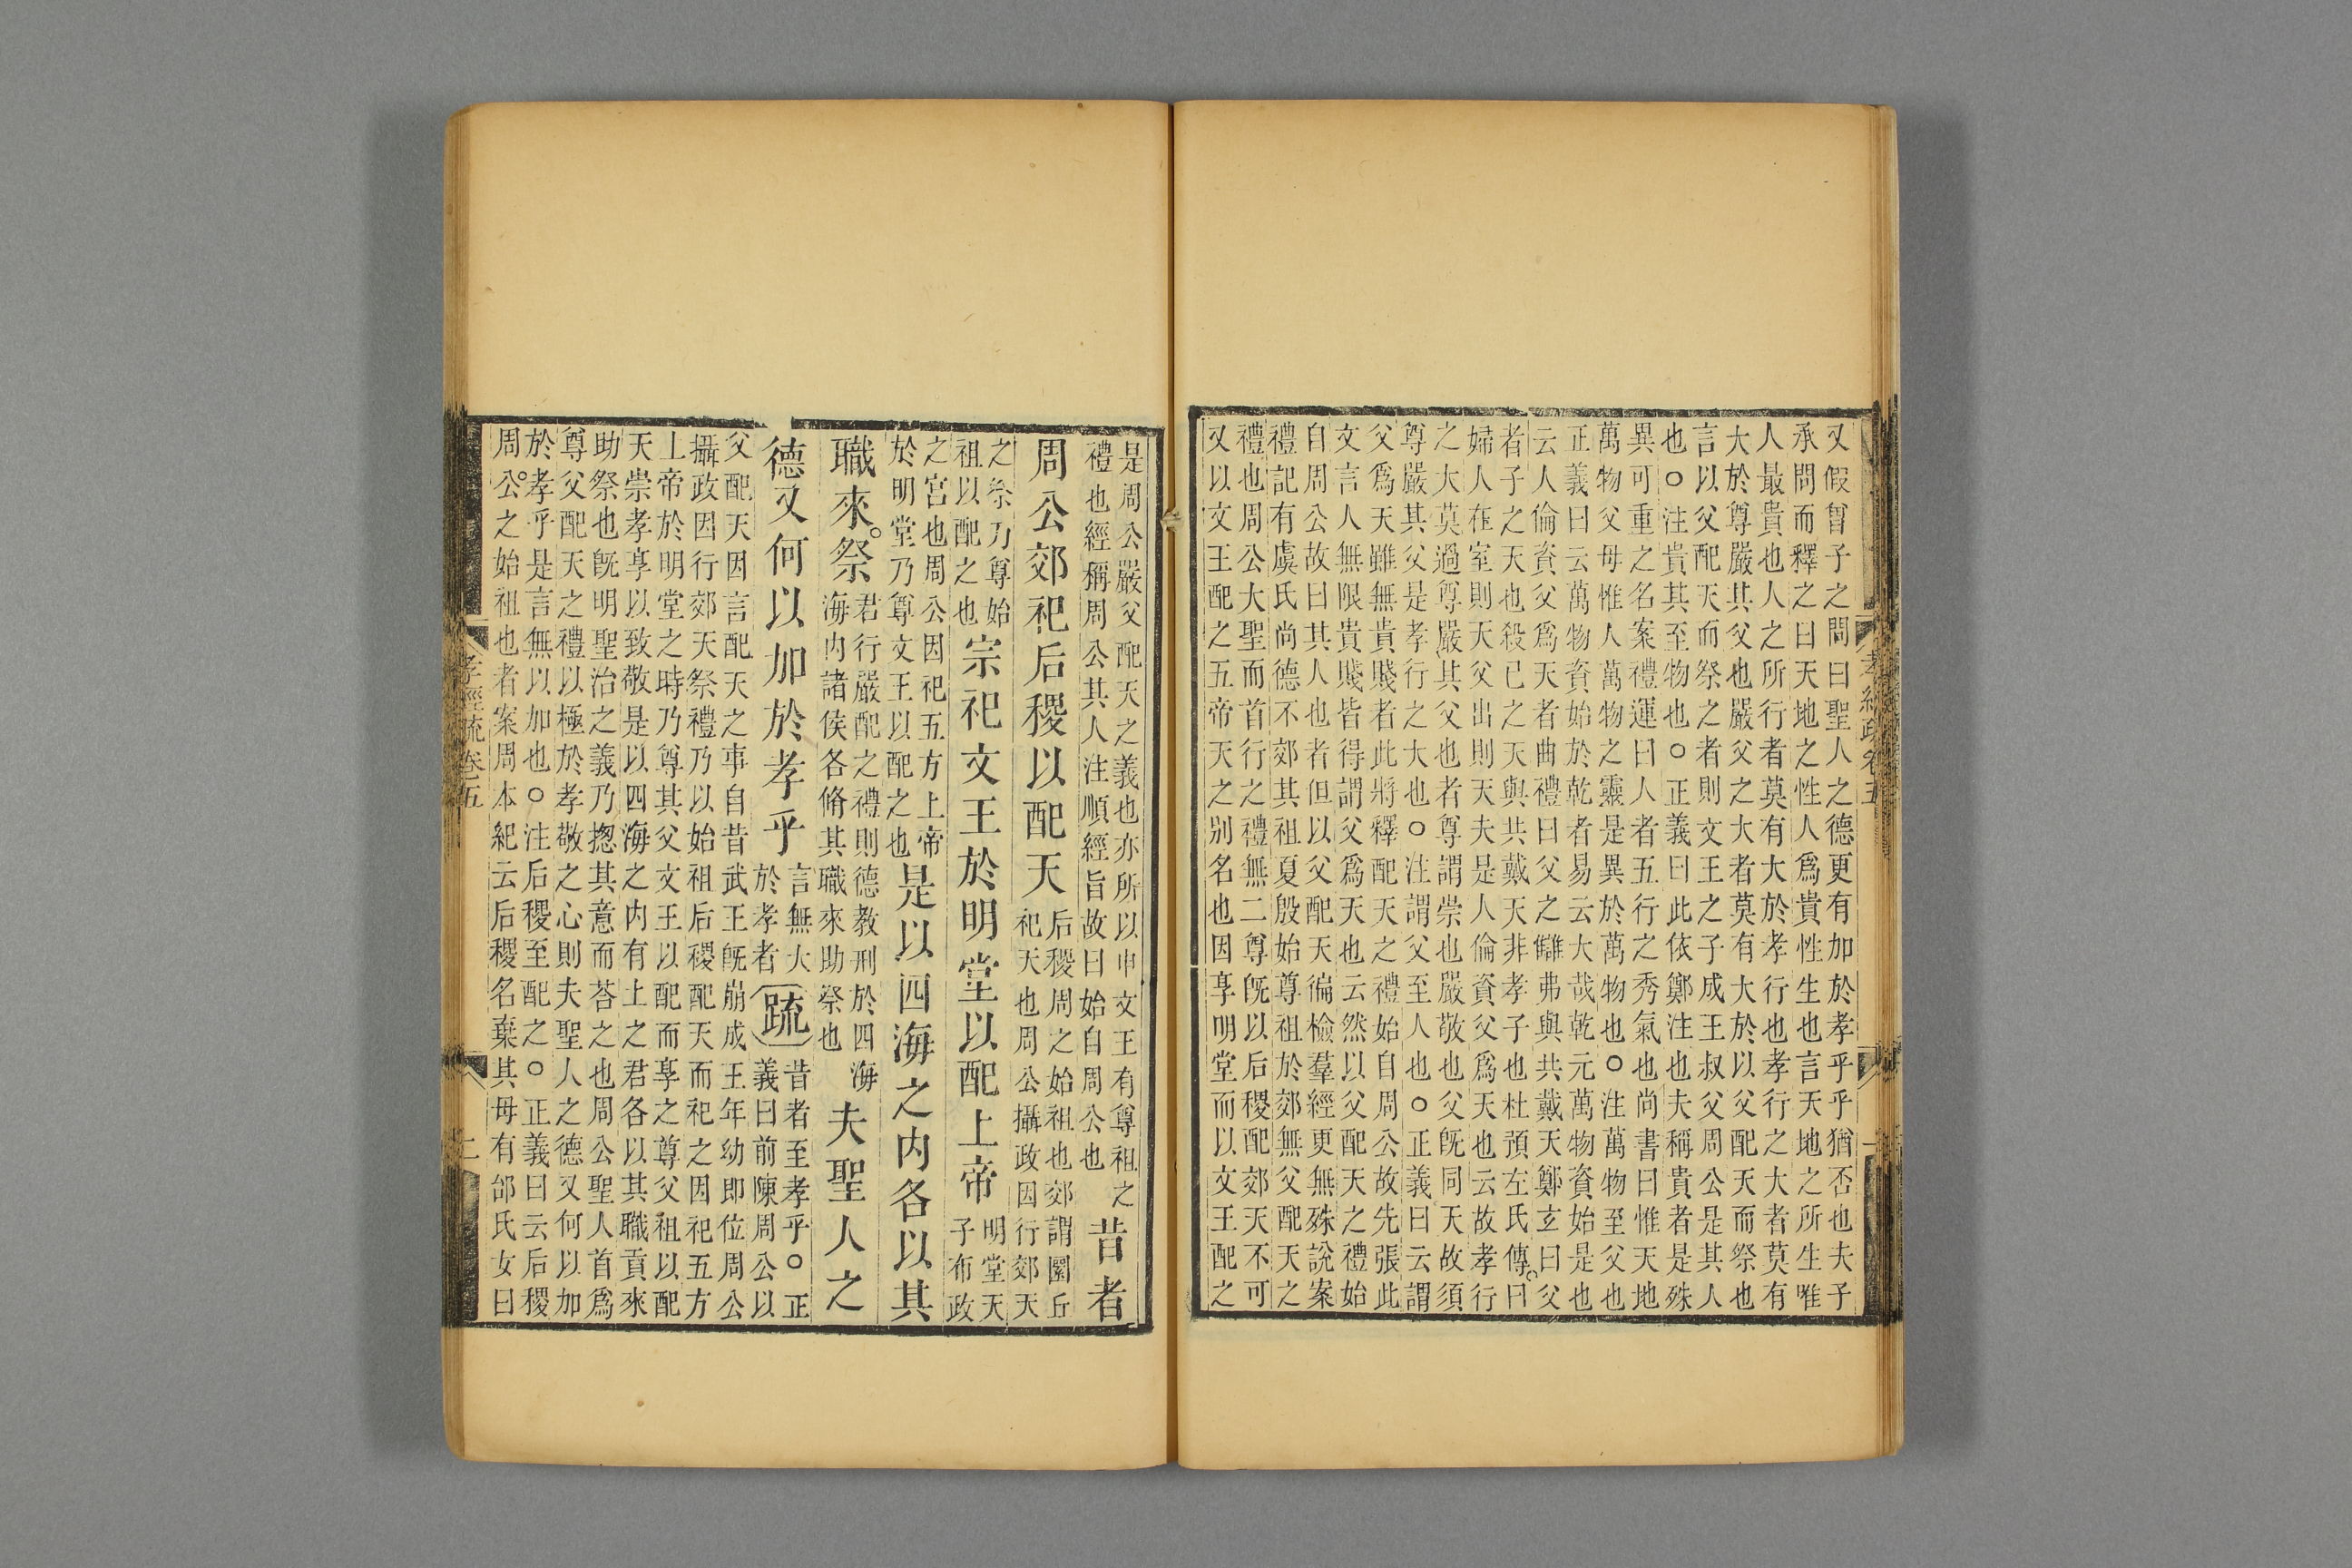 又假曾子之問曰聖人之德更有加於孝乎乎猶否也夫子
承問而釋之曰天地之性人爲貴性生也言天地之所生唯
人最貴也人之所行者莫有大於孝行也孝行之大者莫有
大於尊嚴其父也嚴父之大者莫有大於以父配天而祭也
言以父配天而祭之者則文王之子成王叔父周公是其人
也○注貴其至物也○正義曰此依鄭注也夫稱貴者是殊
異可重之名案禮運曰人者五行之秀氣也尚書曰惟天地
萬物父母惟人萬物之靈是異於萬物也○注萬物至父也
正義曰云萬物資始於乾者易云大哉乾元萬物資始是也
云人倫資父爲天者曲禮曰父之讎弗與共戴天鄭玄曰父
者子之天也殺已之天與共戴天非孝子也杜預左氏傳曰
婦人在室則天父出則天夫是人倫資父爲天也云故孝行
之大莫過尊嚴其父也者尊謂崇也嚴敬也父既同天故須
尊嚴其父是孝行之大也○注謂父至人也○正義曰云謂
父爲天雖無貴賤者此將釋配天之禮始自周公故先張此
文言人無限貴賤皆得謂父爲天也云然以父配天之禮始
自周公故曰其人也者但以父配天徧檢羣經更無殊說案
禮記有虞氏尚德不郊其祖夏殷始尊祖於郊無父配天之
禮也周公大聖而首行之禮無二尊既以后稷配郊天不可
又以文王配之五帝天之别名也因享明堂而以文王配之
是周公嚴父配天之義也亦所以申文王有尊祖之
禮也經稱周公其人注順經旨故曰始自周公也
昔者
周公郊祀后稷以配天
后稷周之始祖也郊謂圜丘
祀天也周公攝政因行郊天
之祭乃尊始
祖以配之也
宗祀文王於明堂以配上帝
明堂天
子布政
之宮也周公因祀五方上帝
於明堂乃尊文王以配之也
是以四海之内各以其
職來祭
君行嚴配之禮則德教刑於四海
海内諸侯各脩其職來助祭也
夫聖人之
德又何以加於孝乎
言無大
於孝者
疏
昔者至孝乎○正
義曰前陳周公以
父配天因言配天之事自昔武王既崩成王年幼即位周公
攝政因行郊天祭禮乃以始祖后稷配天而祀之因祀五方
上帝於明堂之時乃尊其父文王以配而享之尊父祖以配
天崇孝享以致敬是以四海之内有土之君各以其職貢來
助祭也既明聖治之義乃揔其意而荅之也周公聖人首爲
尊父配天之禮以極於孝敬之心則夫聖人之德又何以加
於孝乎是言無以加也○注后稷至配之○正義曰云后稷
周公之始祖也者案周本紀云后稷名棄其母有邰氏女曰
孝經疏卷五
二